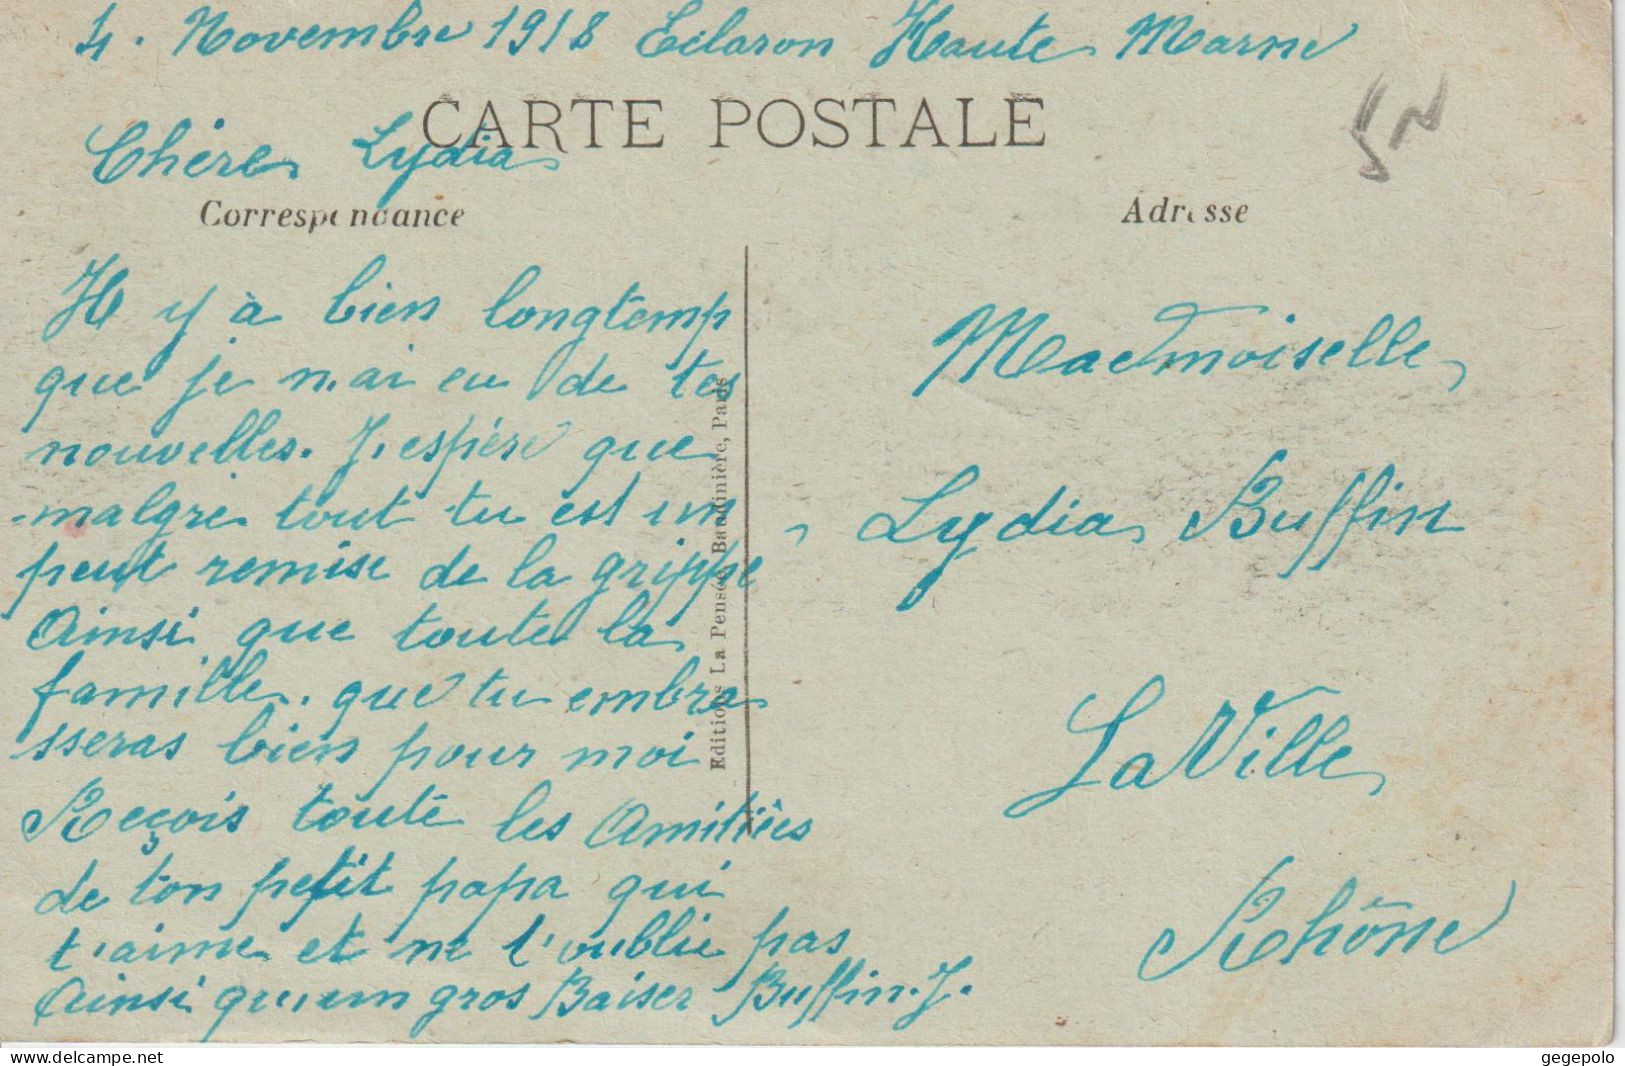 4. Novembre 1918 Eclaron Haute Marne
CARTE POSTALE
5N
Chère Lydia
Correspondance
Adresse
Il y à bien longtemp
que je n,ai eu de tes
nouvelles. J,espère que
malgré tout tu est un
peut remise de la grippe
Ainsi que toute la
famille. que tu embra
sseras bien pour moi
Reçois toute les Amitiées
de ton petit papa qui
t'aime et ne t'oublie pas
Ainsi qu,un gros Baiser Buffin. J.
Editions La Pensée, Baudinière, Paris
Mademoiselle
Lydia Buffin
La Ville
Rhône
delcampe.net
gegepolo